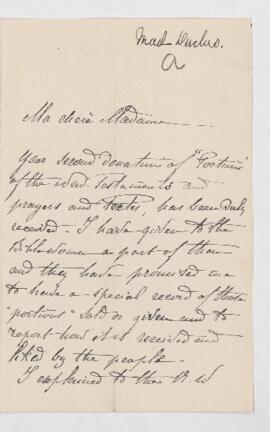 Mad. Duclus.
a
Ma chère Madame
Your second donation of "Portions"
of the New Testaments and
prayers and texts, has been duly
received - I have given to the
Biblewomen a part of them
and they have promised me
to have a special record of these
"portions" sold or given and to
report how it is received and
liked by the people -
I explained to the B. W